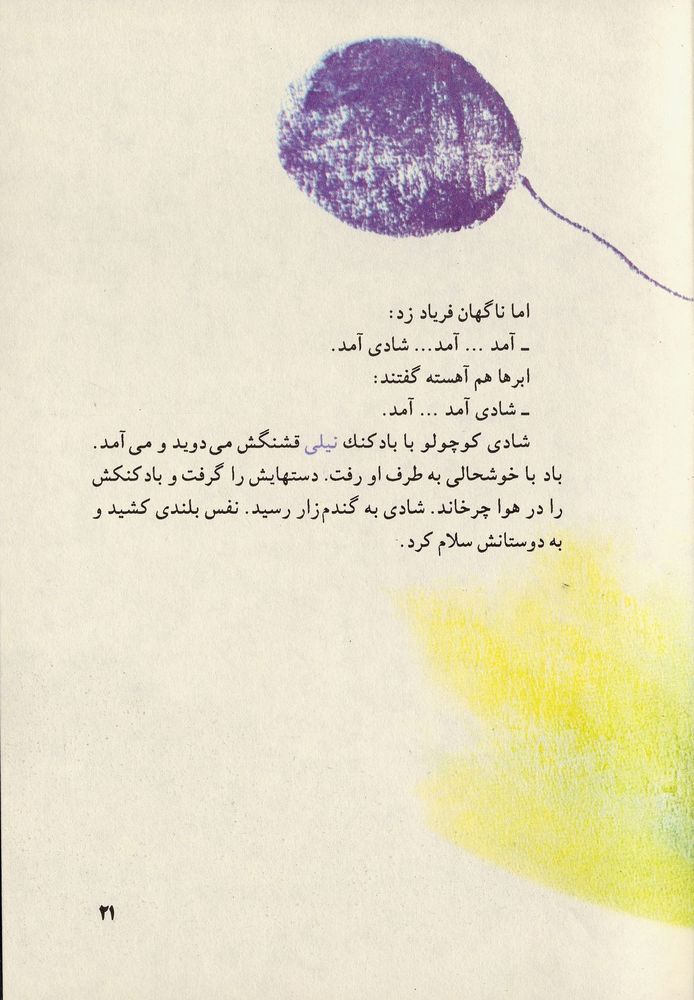 اما ناگهان فریاد زد:
ـ آمد ... آمد... شادی آمد.
ابرها هم آهسته گفتند:
ـ شادی آمد ... آمد.
شادی کوچولو با بادکنك نیلی قشنگش می‌دوید و می‌آمد.
باد با خوشحالی به طرف او رفت. دستهایش را گرفت و بادکنکش
را در هوا چرخاند. شادی به گندم‌زار رسید. نفس بلندی کشید و
به دوستانش سلام کرد.
۲۱